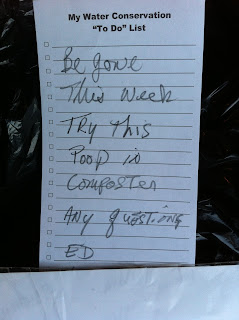 My Water Conservation
"To Do" List
Be gone
This Week
Try This
Poop in
Composter
Any questions
ED